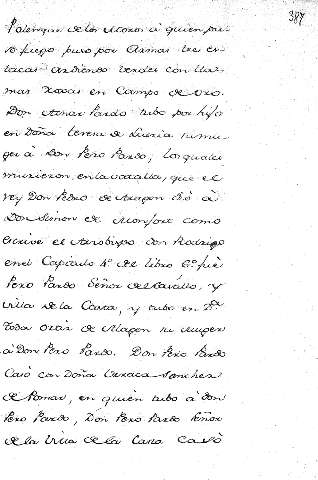 387
Palenque de los Moros á quien puso
fuego puso por Armas tres es
tacas ardiendo verdes con lla-
mas Roxas en Campo de oro.
Don Aznar Pardo tubo por hijo
en Doña Teresa de Liuria su mu-
ger à Don Pero Pardo, los quales
murieron en la vatalla, que el
rey Don Pedro de Aragon dió à
Don Simon de Monfort como
escrive el Arzobispo don Rodrigo
en el Capitulo 4º de libro 6º fué
Pero Pardo Señor de
villa de la Casta, y tubo en Dª
Toda de Aragon su muger
à Don Pero Pardo. Don Pero Pardo
Casó con Doña Urraca Sanchez
de Romay, en quien tubo à don
Pero Pardo, Don Pero Pardo Señor
de la Villa de la Casta Casó